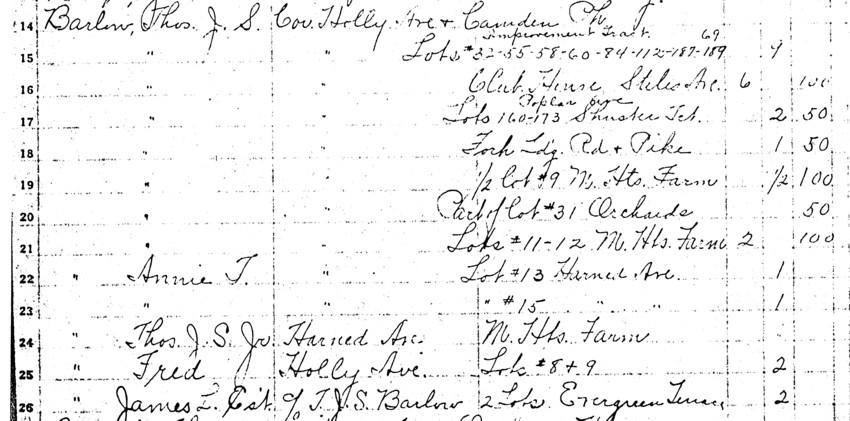 14 Barlow, Thos. J. S. Cor. Holly Ave + Camden Pk.
Improvement Tract. 69
15 " " Lots #32-55-58-60-84-112-187-189 9
16 " " Club House Stiles Ave. 6 100
Poplar ave
17 " " Lots 160-173 Shuster Tct. 2 50
18 " " Fork Ldg. Rd + Pike 1 50
19 " " 1/2 Lot #9 M. Hts. Farm 1/2 100
20 " " Part of Lot #31 Orchards 50
21 " " Lots #11-12 M. Hts. Farm 2 100
22 " Annie T. " Lot #13 Harned Ave. 1
23 " " " " #15 " " 1
24 " Thos. J. S. Jr. Harned Ave. M. Hts. Farm
25 " Fred Holly Ave. Lots #8+9 2
26 " James L. Est. c/o T. J. S. Barlow 2 Lots Evergreen Terrace 2